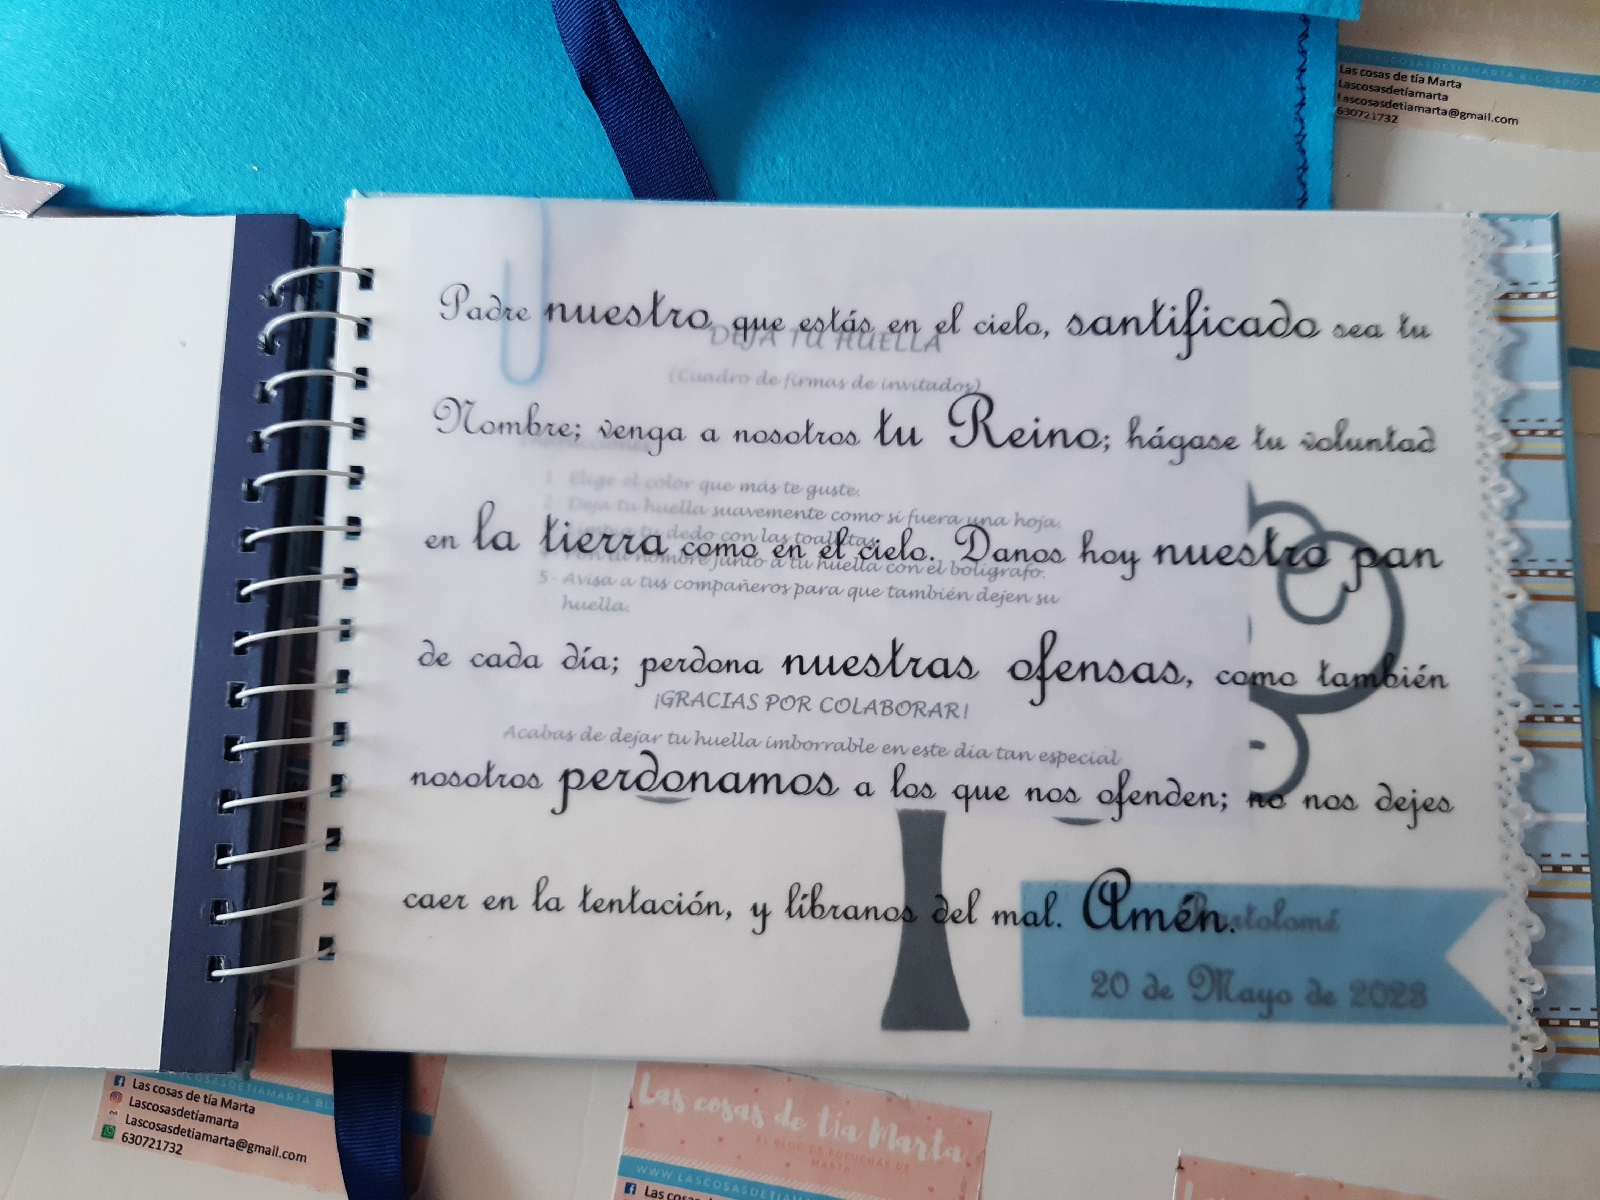 Las cosas de tía Marta
Lascosasdetíamarta
Lascosasdetiamarta@gmail.com
630721732
Padre nuestro que estás en el cielo, santificado sea tu
DEJA TU HUELLA
(Cuadro de firmas de invitados)
Nombre; venga a nosotros tu Reino; hágase tu voluntad
1 Elige el color que más te guste.
2 Deja tu huella suavemente como si fuera una hoja.
tu dedo con las toallitas
en la tierra como en el cielo. Danos hoy nuestro pan
tu nombre junto a tu huella con el bolígrafo.
5- Avisa a tus compañeros para que también dejen su
huella.
de cada día; perdona nuestras ofensas, como también
¡GRACIAS POR COLABORAR!
Acabas de dejar tu huella imborrable en este día tan especial
nosotros perdonamos a los que nos ofenden; no nos dejes
caer en la tentación, y líbranos del mal. Amén.
Bartolomé
20 de Mayo de 2023
Las cosas de tía Marta
Lascosasdetíamarta
Lascosasdetiamarta@gmail.com
630721732
Las cosas de tía Marta
EL BLOG DE
MARTA
WWW.LASCOSASDETIAMA
Las cosas